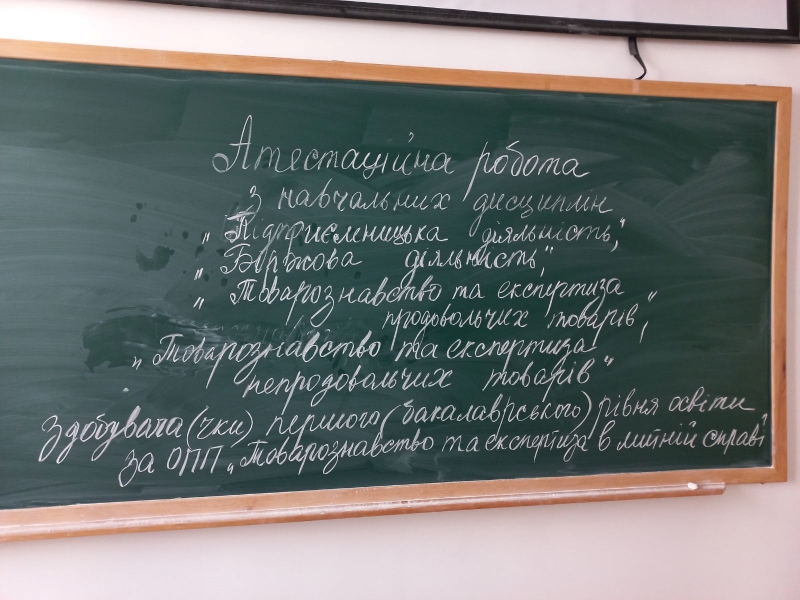 Атестаційна робота
з навчальних дисциплін
„Підприємницька діяльність",
„Біржова діяльність",
„Товарознавство та експертиза
продовольчих товарів",
„Товарознавство та експертиза
непродовольчих товарів"
Здобувача (чки) першого (бакалаврського) рівня освіти
за ОПП „Товарознавство та експертиза в митній справі"